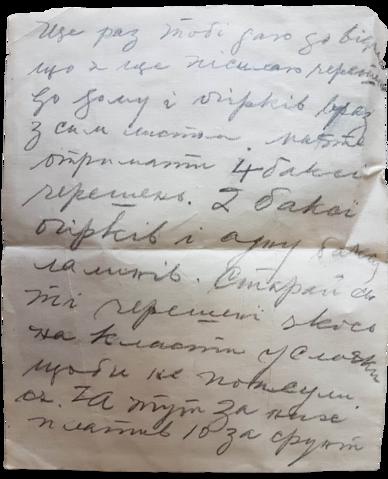 Ще раз тобі даю до відо
що я ще післаю черешні
до дому і огірків враз
з сим листом. маєте
отримати 4 бакси
черешень. 2 бакси
огірків і одну бакс
Старай ся
ті черешні якось
на класти у слоїки
щоби не попсули
ся. Я тут за них
платив 10 за фунт